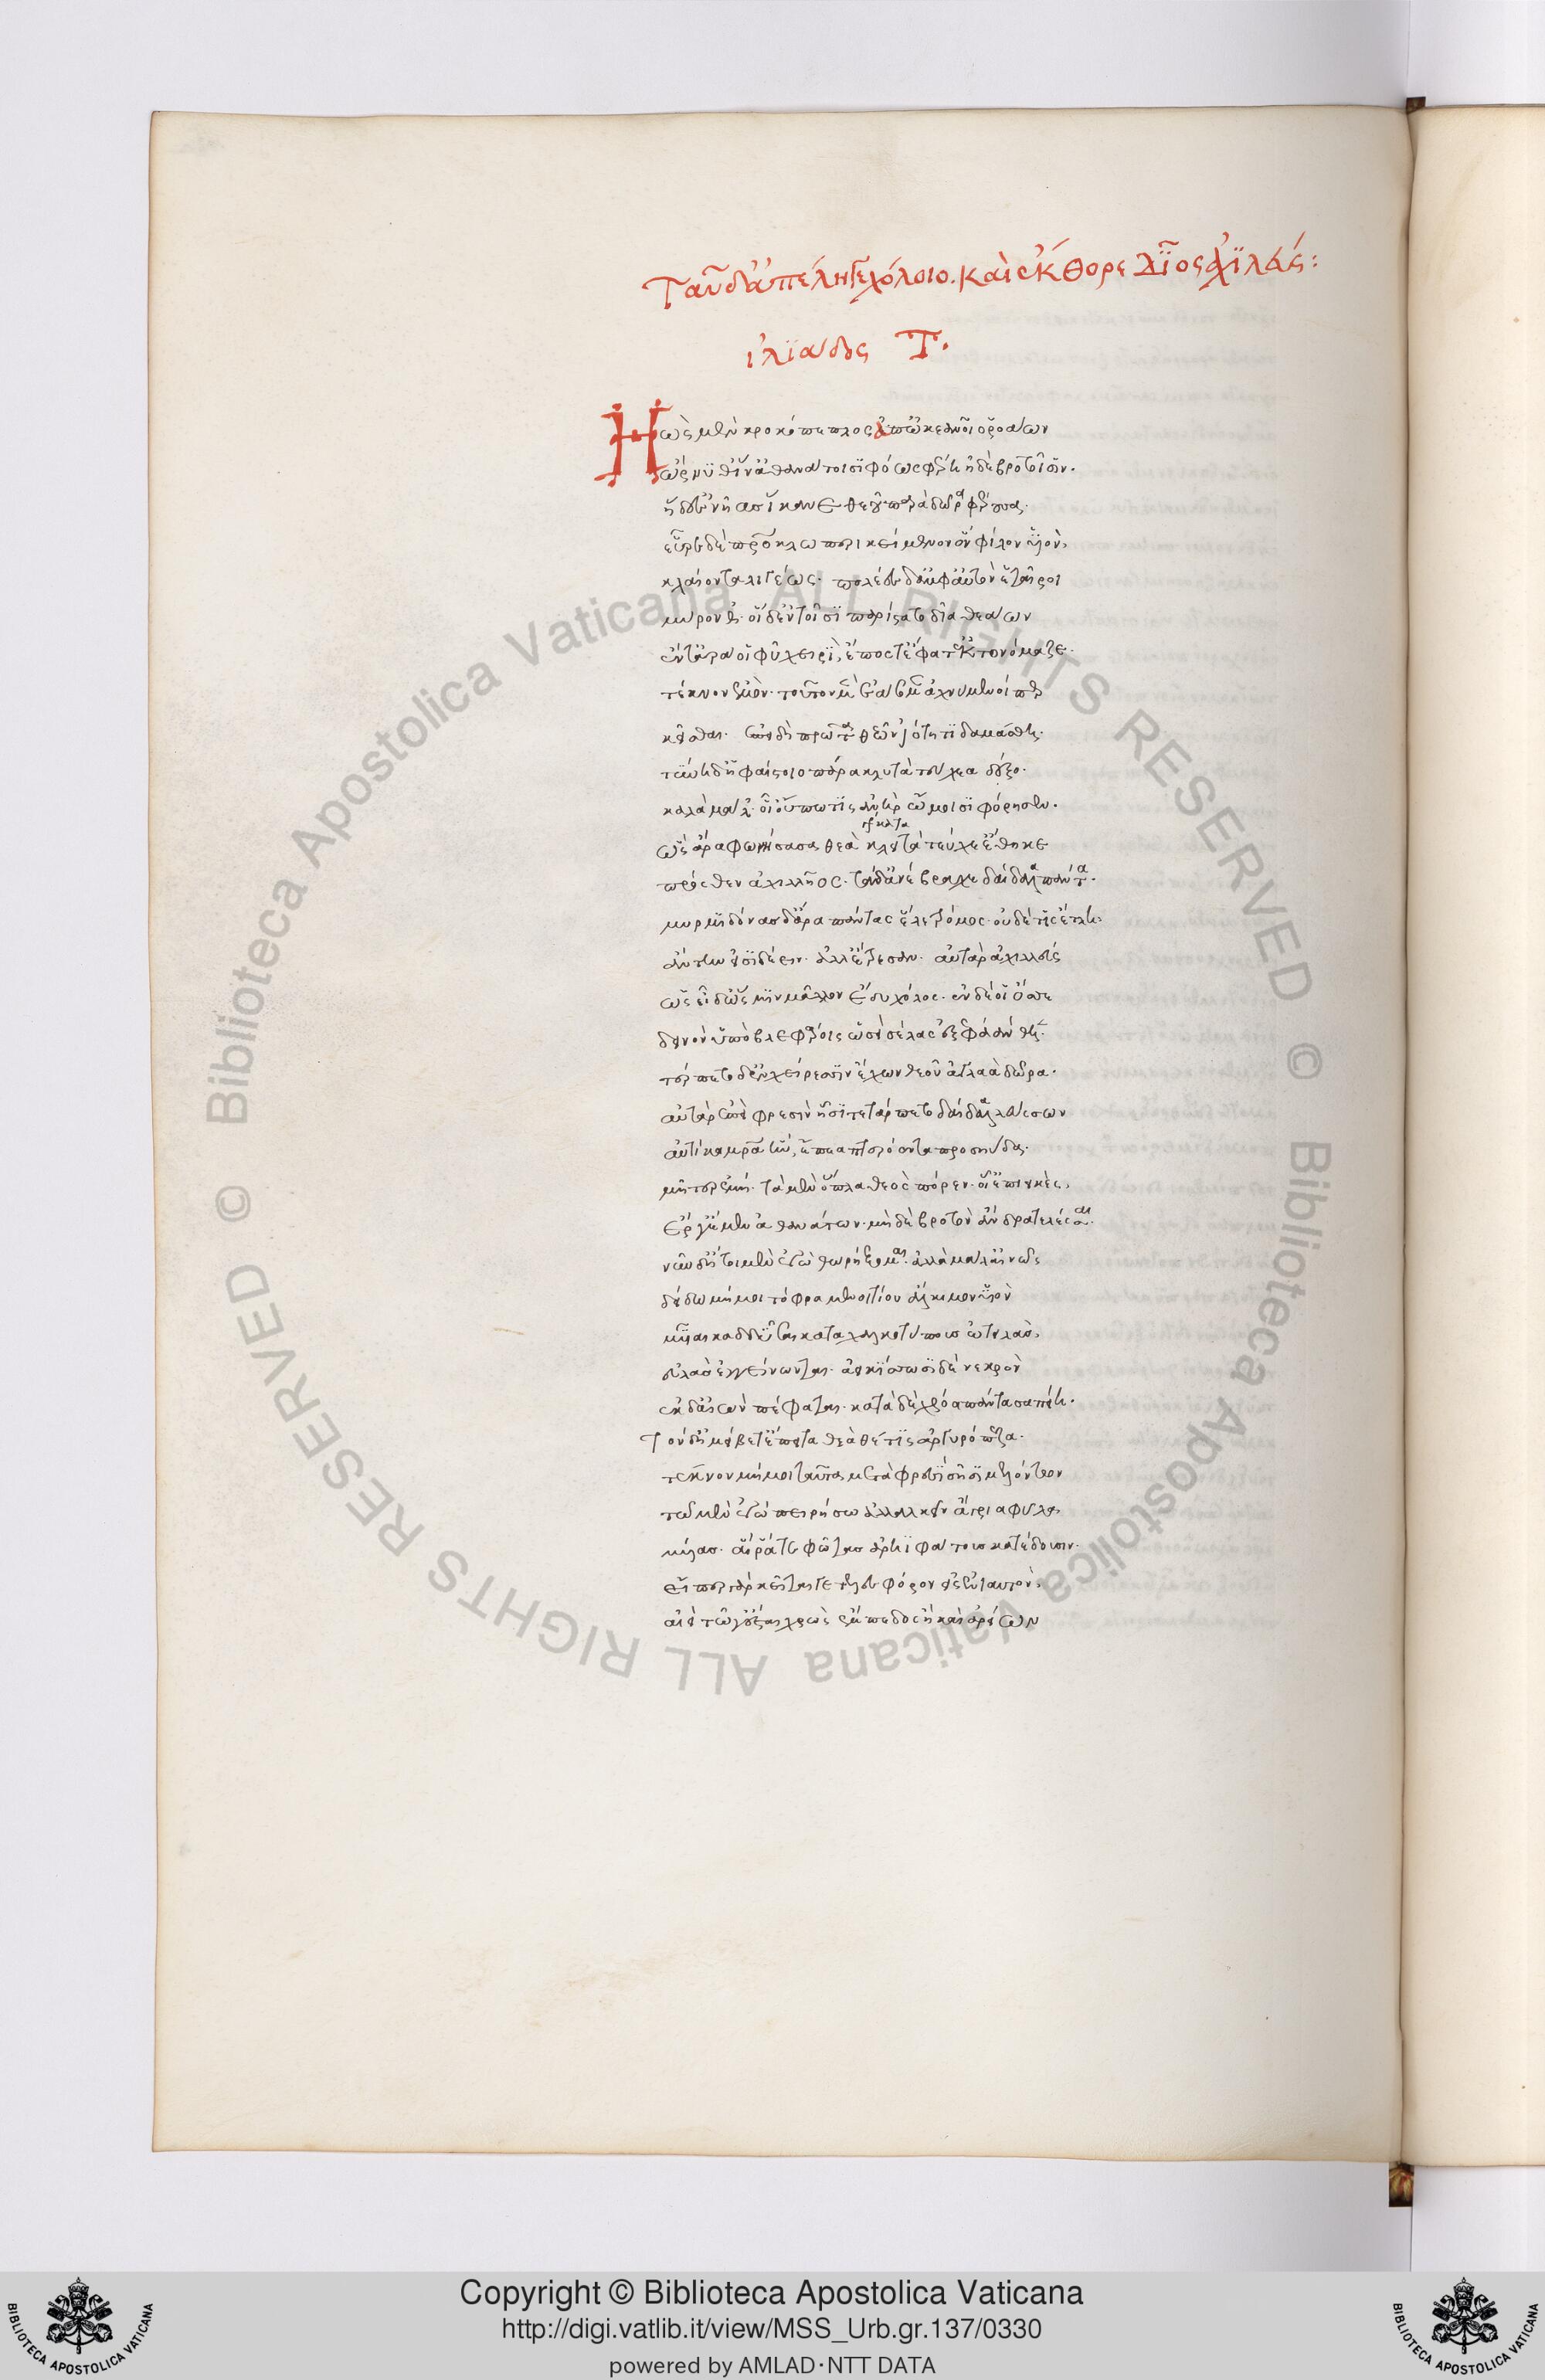 Ταῦ δ' ἀπέληγε χόλοιο. καὶ ἔκθορε δῖος ἀχιλλεύς:
ἰλϊάδος Τ.
Ἠὼς μὲν κροκόπεπλος ἀπ' ὠκεανοῖο ῥοάων
ὤρνυθ' ἵν' ἀθανάτοισι φόως φέρει ἠδὲ βροτοῖσιν.
ἡ δ' ἐς νῆας ἵκανε θεοῦ παρὰ δῶρα φέρουσα.
εὗρε δὲ πατρόκλω περικείμενον ὃν φίλον υἱὸν,
κλαίοντα λιγέως. πολέες δ' ἀμφ' αὐτὸν ἑταῖροι
μύρονθ'. ἡ δ' ἐν τοῖσι παρίστατο δῖα θεάων
ἔν τ' ἄρα οἱ φῦ χειρὶ, ἔπος τ' ἔφατ' ἔκ τ' ὀνόμαζε.
τέκνον ἐμὸν. τοῦτον μὲν ἐάσομεν ἀχνύμενοί περ
κεῖσθαι. ἐπειδὴ πρῶτα θεῶν ἰότητι δαμάσθη.
τύνη δ' ἡφαίστοιο πάρα κλυτὰ τεύχεα δέξο.
καλὰ μάλ'. οἷ' οὔπω τις ἀνὴρ ὤμοισι φόρησεν.
ὣς ἄρα φωνήσασα θεὰ κλυτὰ τεύχε' ἔθηκε
πρόσθεν ἀχιλλῆος. τὰ δ' ἀνέβραχε δαίδαλα πάντα.
μυρμιδόνας δ' ἄρα πάντας ἕλε τρόμος. οὐδέ τις ἔτλη
ἄντην εἰσιδέειν. ἀλλ' ἔτρεσαν. αὐτὰρ ἀχιλλεύς
ὡς εἶδ' ὥς μιν μᾶλλον ἔδυ χόλος. ἐν δέ οἱ ὄσσε
δεινὸν ὑπὸ βλεφάροις ὡσεὶ σέλας ἐξεφάανθεν.
τέρπετο δ' ἐν χείρεσσιν ἔχων θεοῦ ἀγλαὰ δῶρα.
αὐτὰρ ἐπεὶ φρεσὶν ᾗσι τετάρπετο δαίδαλα λεύσσων
αὐτίκα μητέρα ἣν, ἔπεα πτερόεντα προσηύδα.
μῆτερ ἐμή. τὰ μὲν ὅπλα θεὸς πόρεν. οἷ' ἐπιεικὲς,
ἔργ' ἔμεν ἀθανάτων. μὴ δὲ βροτὸν ἄνδρα τελέσσαι.
νῦν δ' ἤτοι μὲν ἐγὼ θωρήξομαι. ἀλλὰ μάλ' αἰνῶς
δείδω μή μοι τόφρα μενοιτίου ἄλκιμον υἱὸν
μυῖαι καδδῦσαι κατὰ χαλκοτύπους ὠτειλάς,
εὐλὰς ἐγγείνωνται. ἀεικίσσωσι δὲ νεκρὸν
ἐκ δ' αἰὼν πέφαται. κατὰ δὲ χρόα πάντα σαπείη.
Τὸν δ' ἠμείβετ' ἔπειτα θεὰ θέτις ἀργυρόπεζα.
τέκνον μή μοι ταῦτα μετὰ φρεσὶ σῇσι μελόντων
τῶ μὲν ἐγὼ πειρήσω ἀλαλκεῖν ἄγρια φῦλα
μυίας. αἵ ῥά τε φῶτας ἀρηϊφάτους κατέδουσιν.
ἤν περ γὰρ κεῖταί γε τελεσφόρον εἰς ἐνιαυτὸν,
αἰεὶ τῶ γ' ἔσται χρὼς ἔμπεδος ἢ καὶ ἀρείων
Copyright © Biblioteca Apostolica Vaticana
http://digi.vatlib.it/view/MSS_Urb.gr.137/0330
powered by AMLAD·NTT DATA